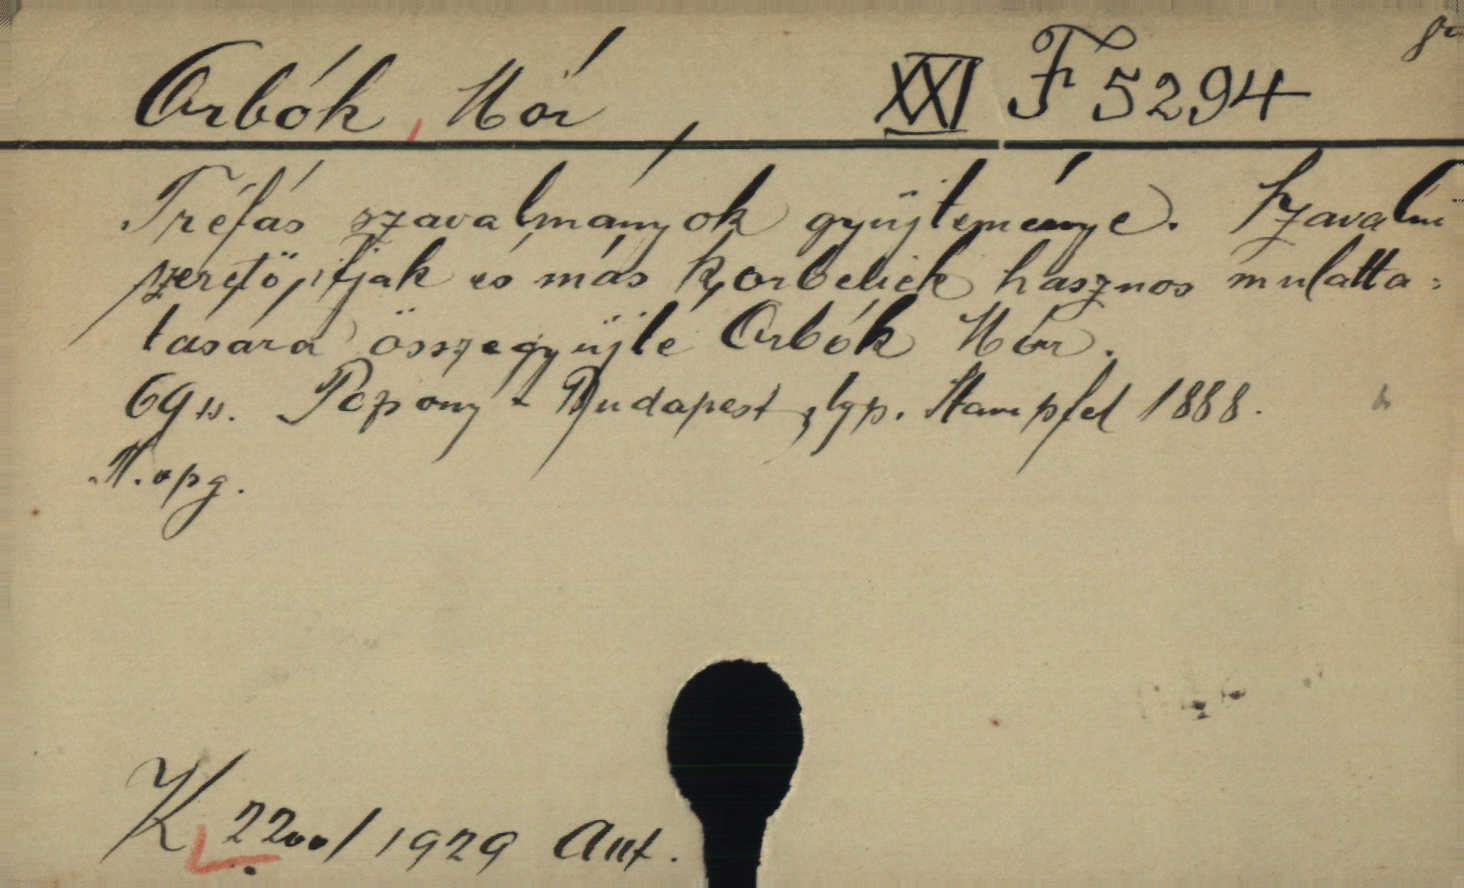 Orbók, Mór, XXI F 5294 8r
Tréfás szavalmányok gyüjteménye. Szavalni
szerető ifjak és más korbeliek hasznos mulatta=
tására összegyüjté Orbók Mór.
69 s. Pozsony - Budapest, typ. Stampfel 1888.
N. opg.
K 2200/1929 Ant.